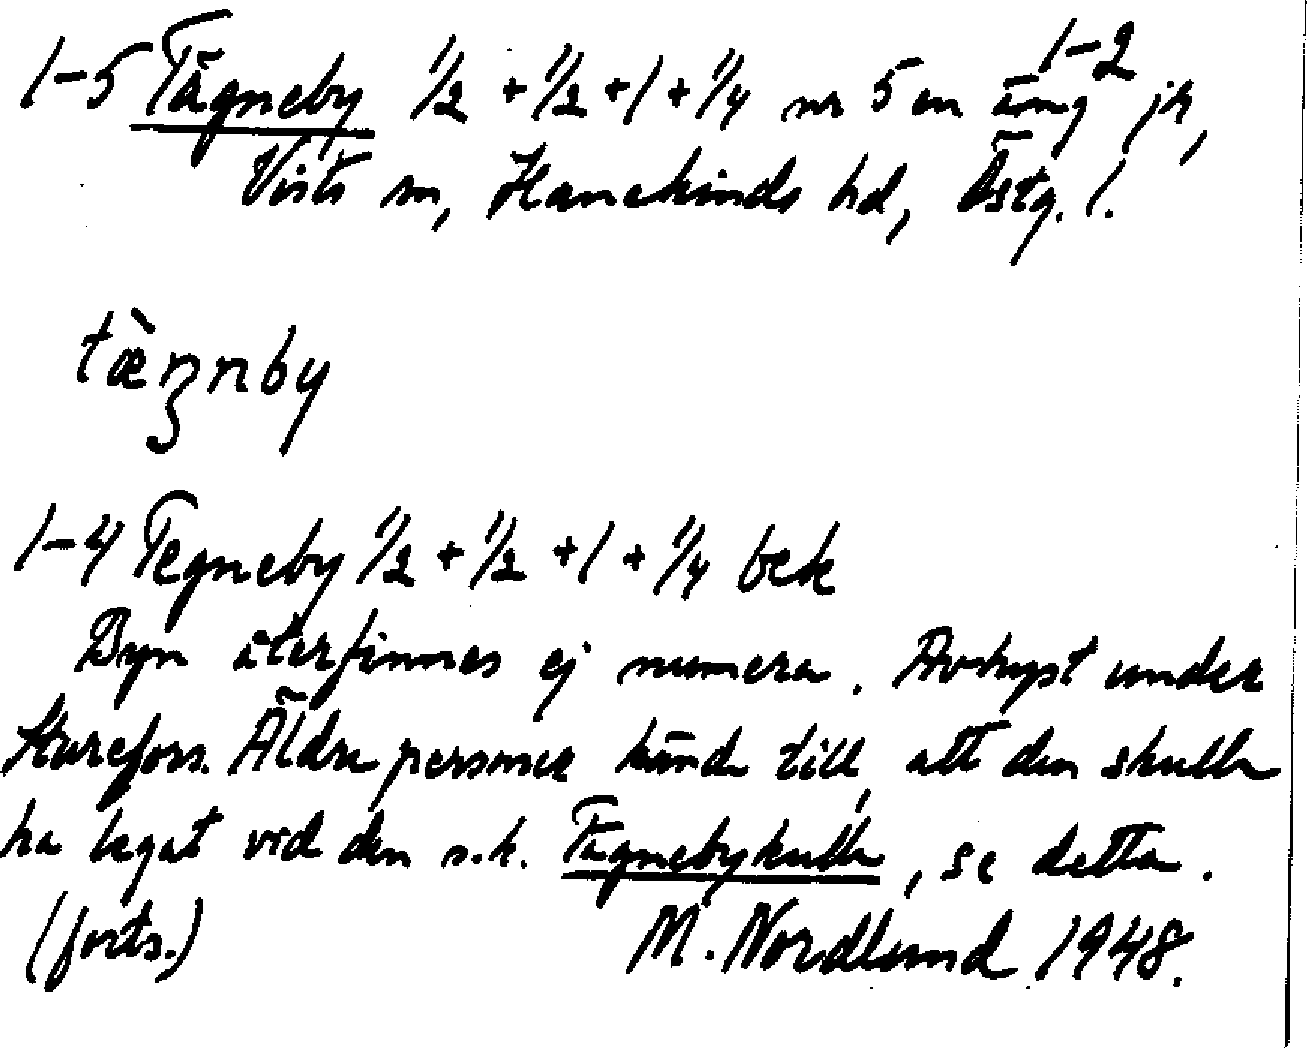 1-5 Tägneby 1/2 + 1/2 + 1 + 1/4 nr 5 en äng 1-2 jr,
Vists sn, Hanekinds hd, Östg. l.
tæ̀ŋnby
1-4 Tegneby 1/2 + 1/2 + 1 + 1/4 bek
Byn återfinnes ej numera. Avhyst under
Sturefors. Äldre personer kände till, att den skulle
ha legat vid den s.k. Tägnebykulle, se detta.
(forts.) M. Nordlund 1948.